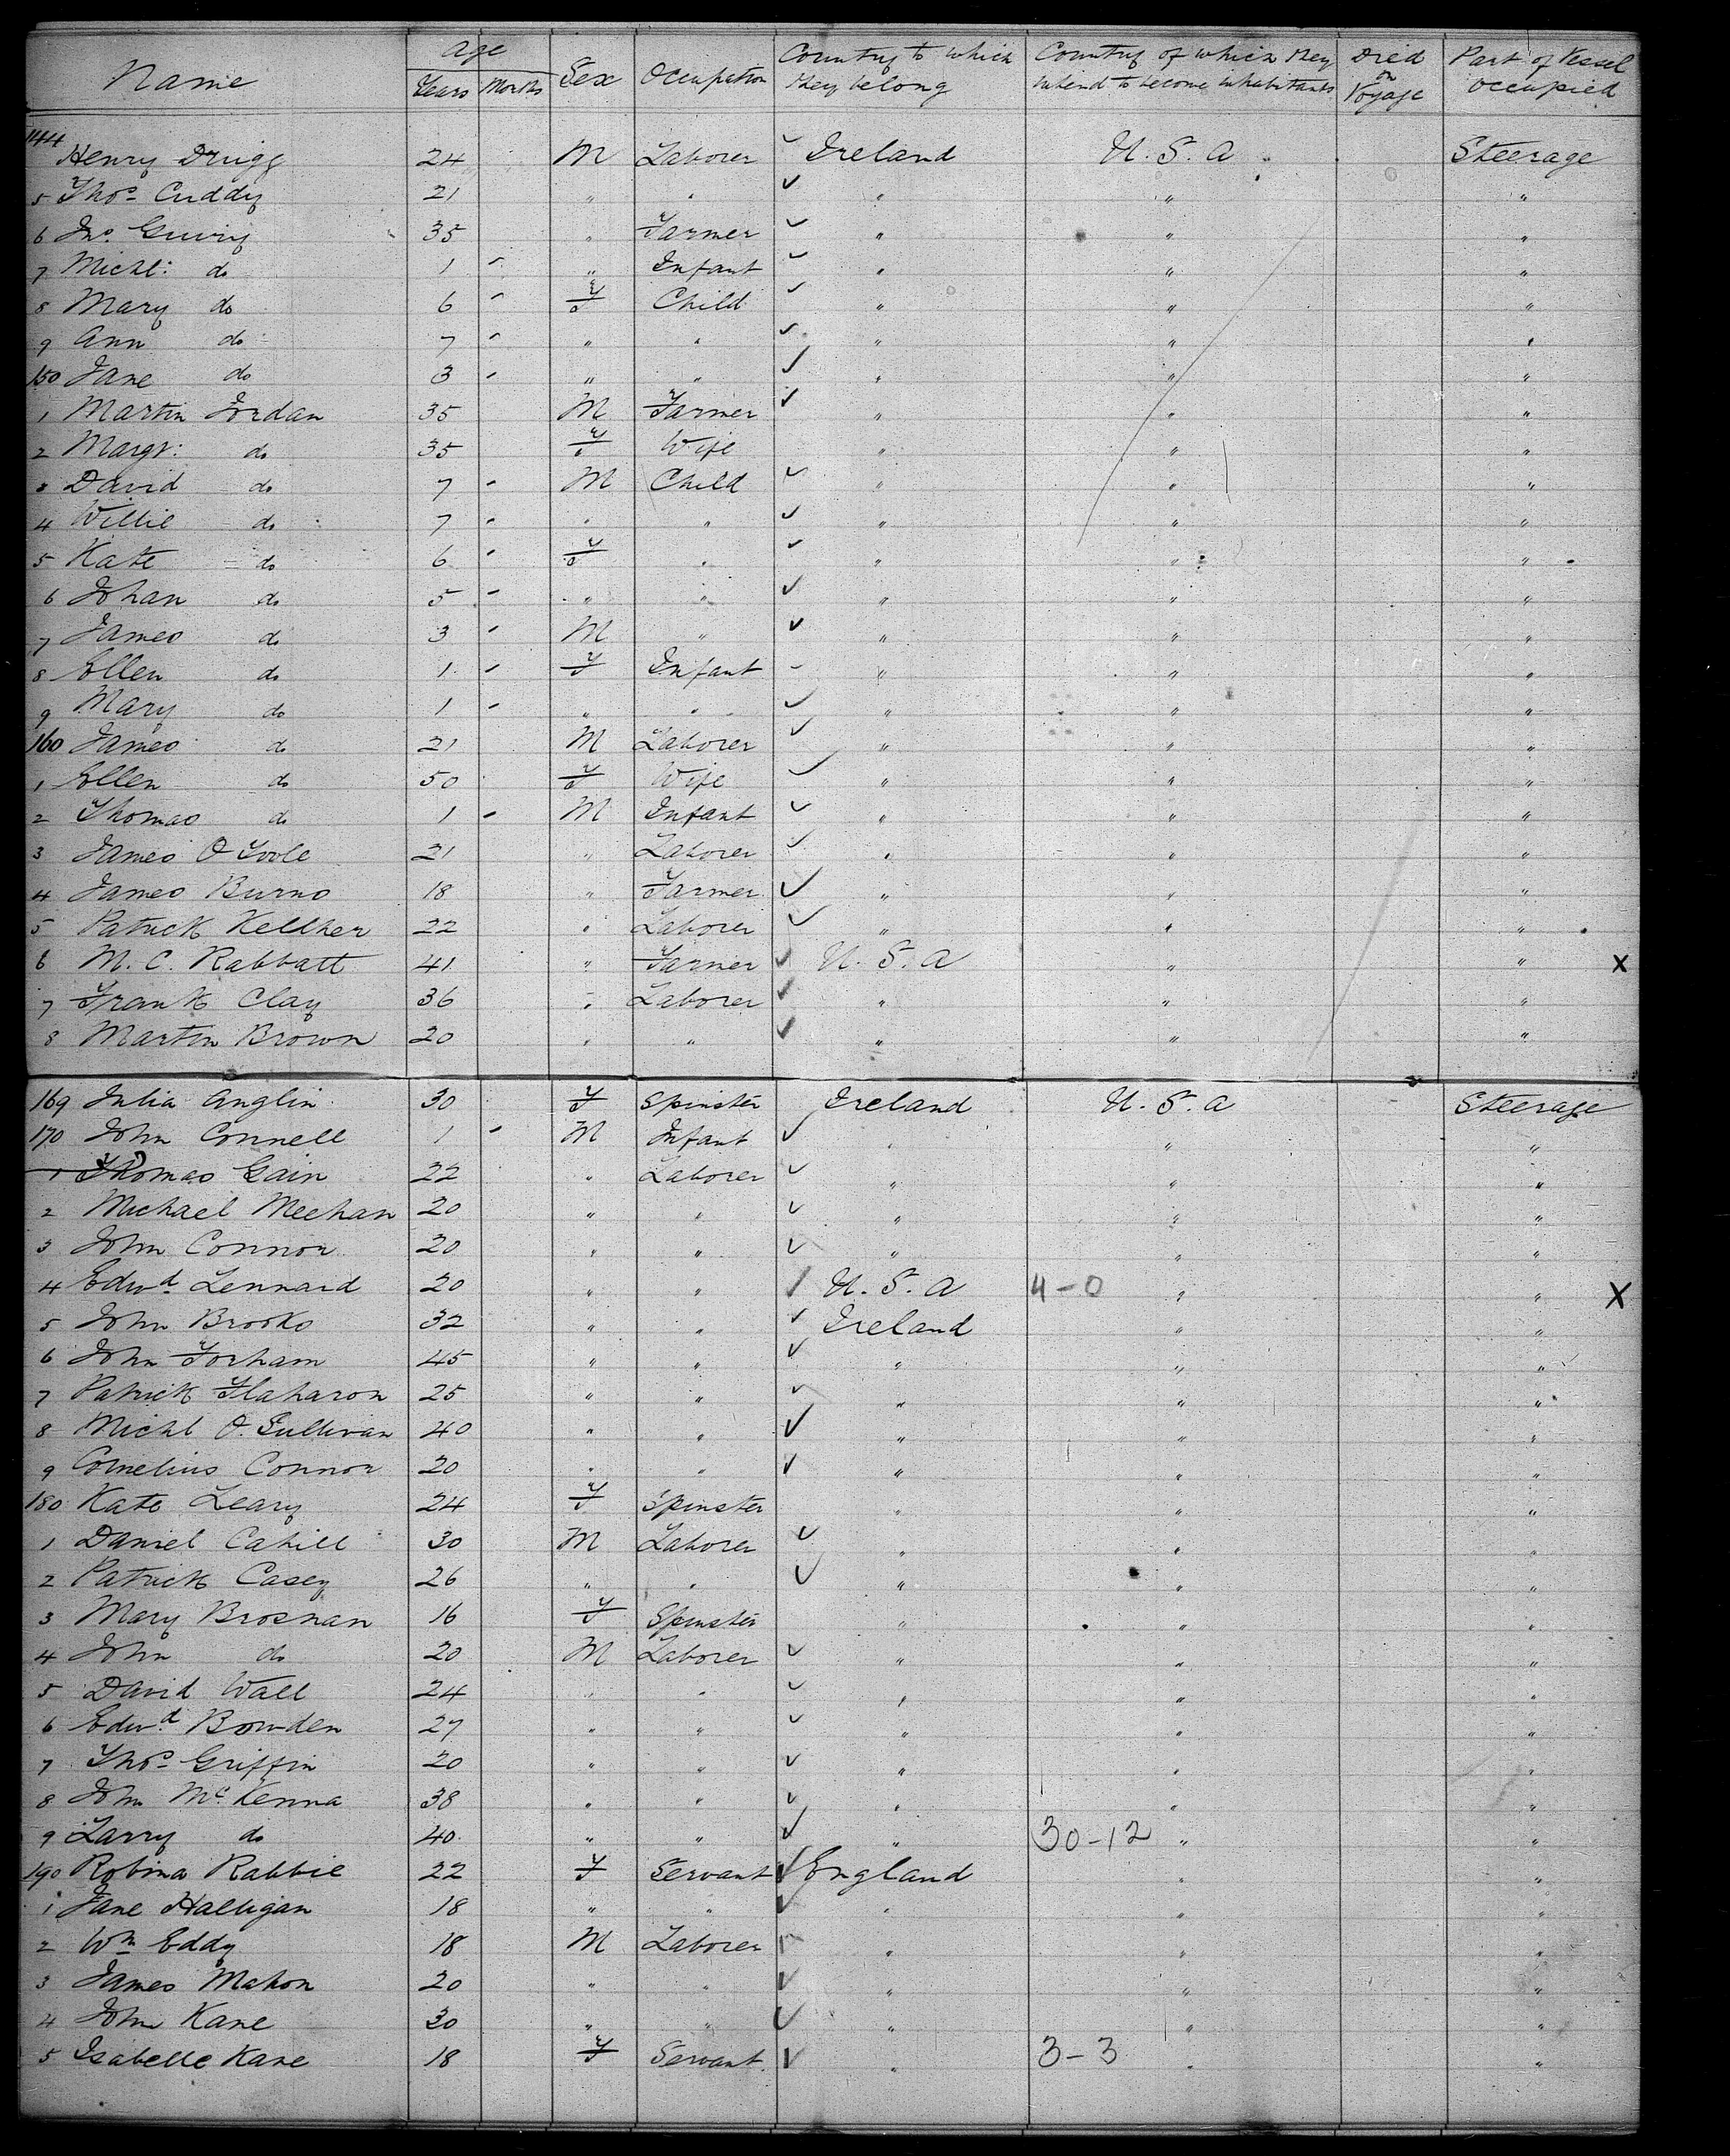 Name Age Years Months Sex Occupation Country to which they belong Country of which they intend to become inhabitants Died on Voyage Part of Vessel occupied
144 Henry Drigg 24 M Laborer ✓ Ireland U.S.A Steerage
5 Thos Cuddy 21 " " ✓ " " "
6 Jno. 35 " Farmer ✓ " " "
7 Michl: do 1 - " Infant ✓ " " "
8 Mary do 6 - F Child ✓ " " "
9 Ann do 7 - " " ✓ " " "
150 Jane do 3 - " " ✓ " " "
1 Martin Jordan 35 M Farmer ✓ " " "
2 Margt: do 35 F Wife " " "
3 David do 7 - M Child ✓ " " "
4 Willie do 7 - " " ✓ " " "
5 Kate do 6 - F " ✓ " " "
6 Johan do 5 - " " ✓ " " "
7 James do 3 - M " ✓ " " "
8 Ellen do 1 - F Infant - " " "
9 Mary do 1 - " " ✓ " " "
160 James do 21 M Laborer ✓ " " "
1 Ellen do 50 F Wife ✓ " " "
2 Thomas do 1 - M Infant ✓ " " "
3 James O Toole 21 " Laborer ✓ " " "
4 James Burns 18 " Farmer ✓ " " "
5 Patrick Kellher 22 " Laborer ✓ " " "
6 M. C. Rabbatt 41 " Farmer ✓ U.S.A " " X
7 Frank Clay 36 " Laborer ✓ " " "
8 Martin Brown 20 " " ✓ " " "
169 Julia Anglin 30 F Spinster Ireland U.S.A Steerage
170 John Connell 1 - M Infant ✓ " " "
1 Thomas Gain 22 " Laborer ✓ " " "
2 Michael Meehan 20 " " ✓ " " "
3 John Connor 20 " " ✓ " " "
4 Edwd Lennard 20 " " ✓ U.S.A 4-0 " " X
5 John Brooks 32 " " ✓ Ireland " "
6 John Forham 45 " " ✓ " " "
7 Patrick Flaharon 25 " " ✓ " " "
8 Michl O. Sullivan 40 " " ✓ " " "
9 Cornelius Connor 20 " " ✓ " " "
180 Kate Leary 24 F Spinster " " "
1 Daniel Cahill 30 M Laborer ✓ " " "
2 Patrick Casey 26 " " ✓ " " "
3 Mary Brosnan 16 F Spinster " " "
4 John do 20 M Laborer ✓ " " "
5 David Wall 24 " " ✓ " " "
6 Edwd Bowden 27 " " ✓ " " "
7 Thos Griffin 20 " " ✓ " " "
8 John McKenna 38 " " ✓ " " "
9 Larry do 40 " " ✓ " 30-12 " "
190 Robina Rabbie 22 F Servant ✓ England " "
1 Jane Halligan 18 " " ✓ " " "
2 Wm Eddy 18 M Laborer ✓ " " "
3 James Mahon 20 " " ✓ " " "
4 John Kane 30 " " ✓ " " "
5 Isabelle Kane 18 F Servant ✓ " 3-3 " "